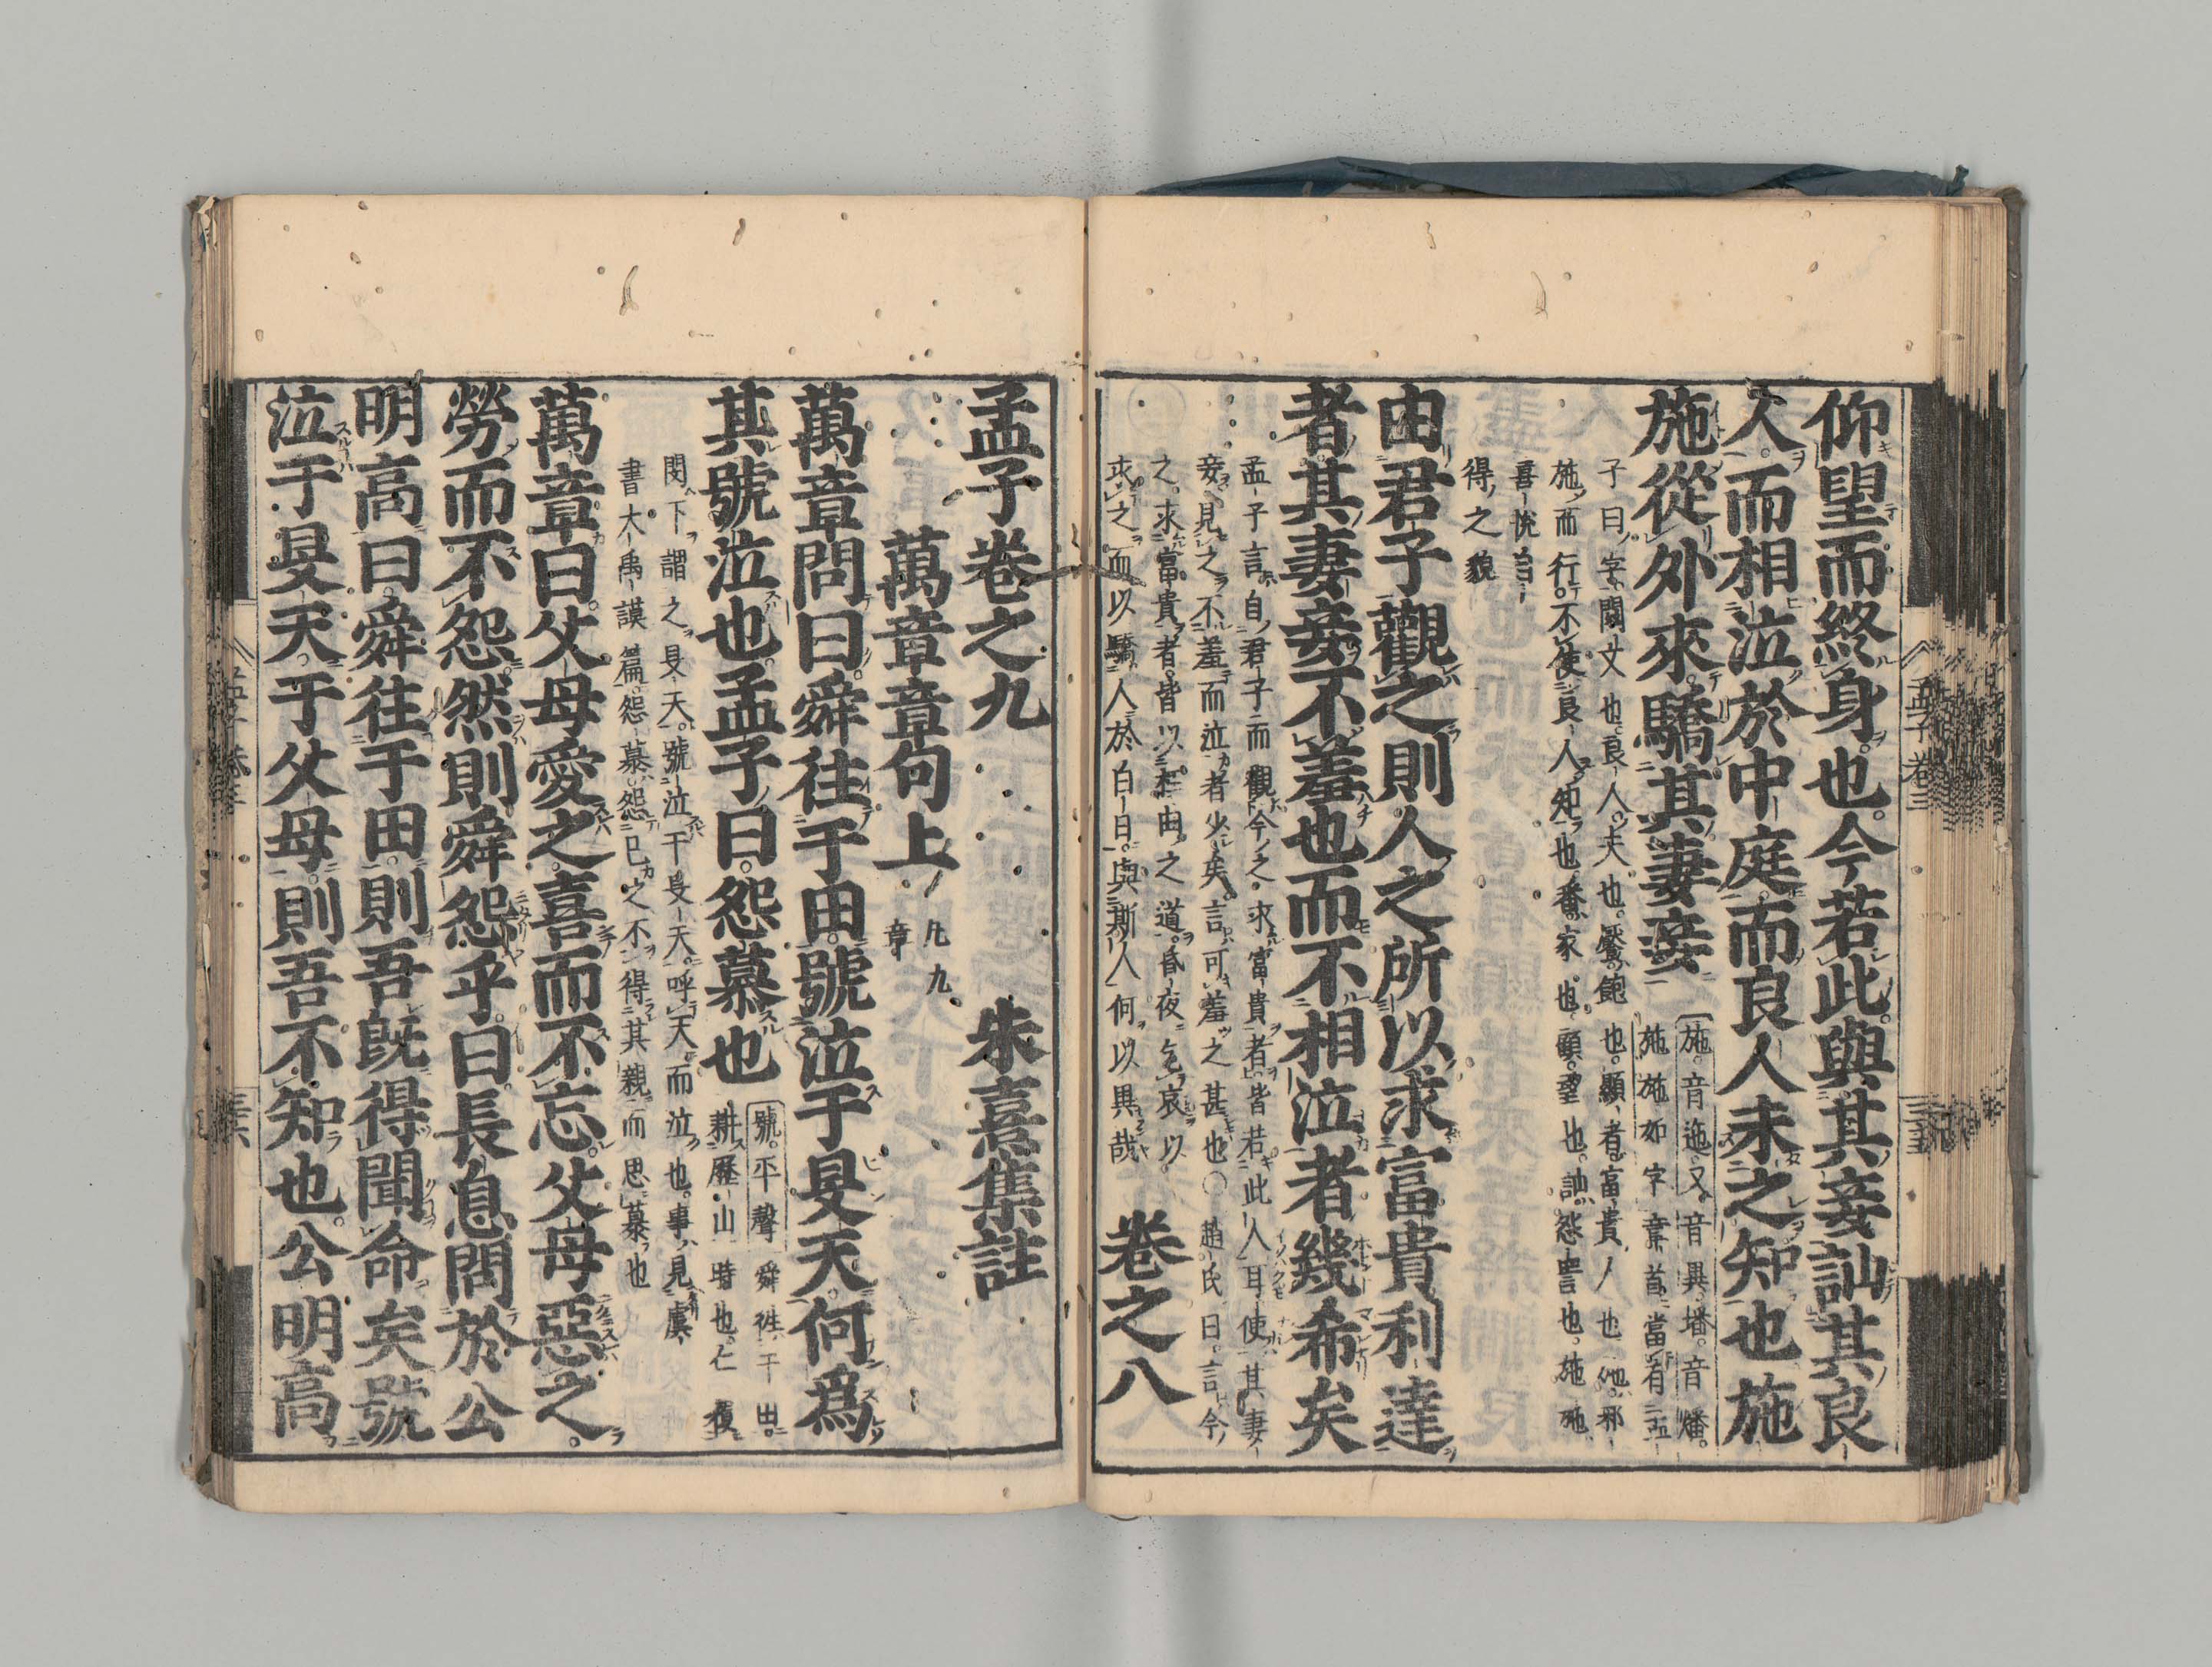 仰望而終身也今若此與其妾訕其良
人而相泣於中庭而良人未之知也施
施從外來驕其妻妾
施音迤又音異墦音燔
施施如字章首當有孟
子曰字閒文也良人夫也饜飽也顯者富貴人也
施而行不使良人知也墦家也顧望也訕怨詈也施施
喜悅自
得之貌
由君子觀之則人之所以求富貴利達
者其妻妾不羞也而不相泣者幾希矣
孟子言自君子而觀今之求富貴者皆若此人耳使其妻
妾見之不羞而泣者少矣言可羞之甚也○趙氏曰言今
之求富貴者皆以枉曲之道昏夜乞哀以
求之而以驕人於白日與斯人何以異哉
卷之八
孟子卷三
三十五
孟子卷之九
朱熹集註
萬章章句上
凡九
章
萬章問曰舜往于田號泣于旻天何爲
其號泣也孟子曰怨慕也
號平聲舜往于田
耕歷山時也仁覆
閔下謂之旻天號泣于旻天呼天而泣也事見虞
書大禹謨篇怨慕怨己之不得其親而思慕也
萬章曰父母愛之喜而不忘父母惡之
勞而不怨然則舜怨乎曰長息問於公
明高曰舜往于田則吾旣得聞命矣號
泣于旻天于父母則吾不知也公明高
孟子卷三
三十六